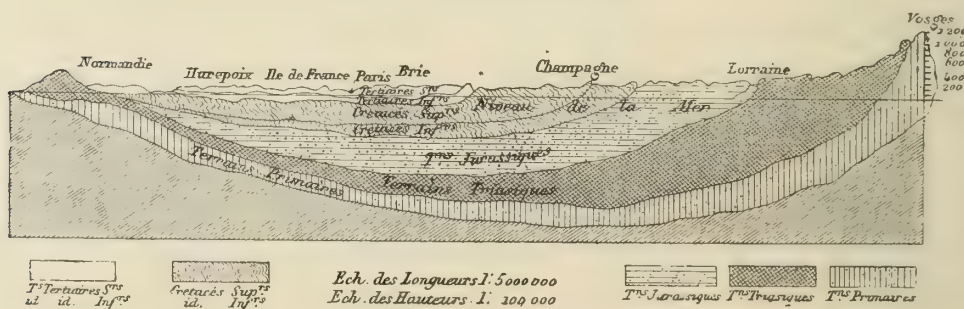 Vosges
1200
1000
800
600
400
200
Normandie
Hurepoix Ile de France Paris Brie
Champagne
Lorraine
Tertiaires Srs
Tertiaires Infrs
Crétacés Suprs
Crétacés Infrs
Niveau de la Mer
Tns Jurassiques
Terrains Triasiques
Terrains Primaires
Ts Tertiaires Srs
id id. Infrs
Crétacés Suprs
id. Infrs
Ech. des Longueurs 1: 5000000
Ech. des Hauteurs 1: 100 000
Tns Jurassiques
Tns Triasiques
Tns Primaires